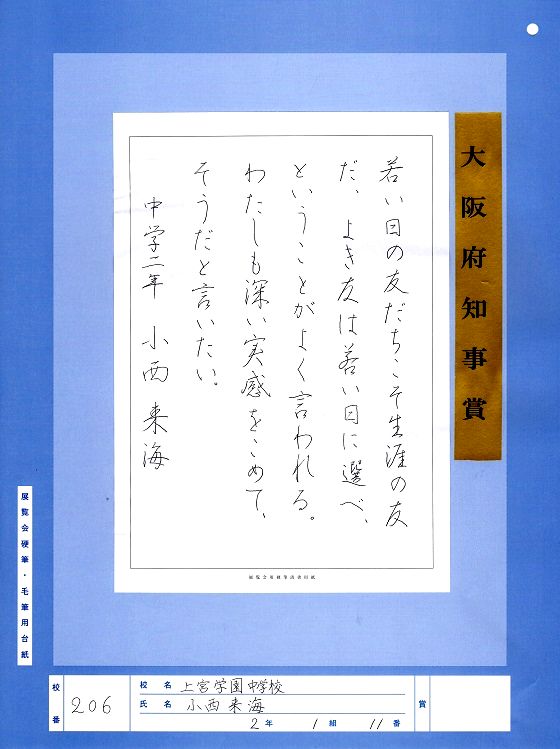 大阪府知事賞
若い日の友だちこそ生涯の友
だ、よき友は若い日に選べ、
ということがよく言われる。
わたしも深い実感をこめて、
そうだと言いたい。
中学二年 小西来海
展覧会硬筆・毛筆用台紙
校番 206
校名 上宮学園中学校
氏名 小西来海
2年 1組 11番
賞